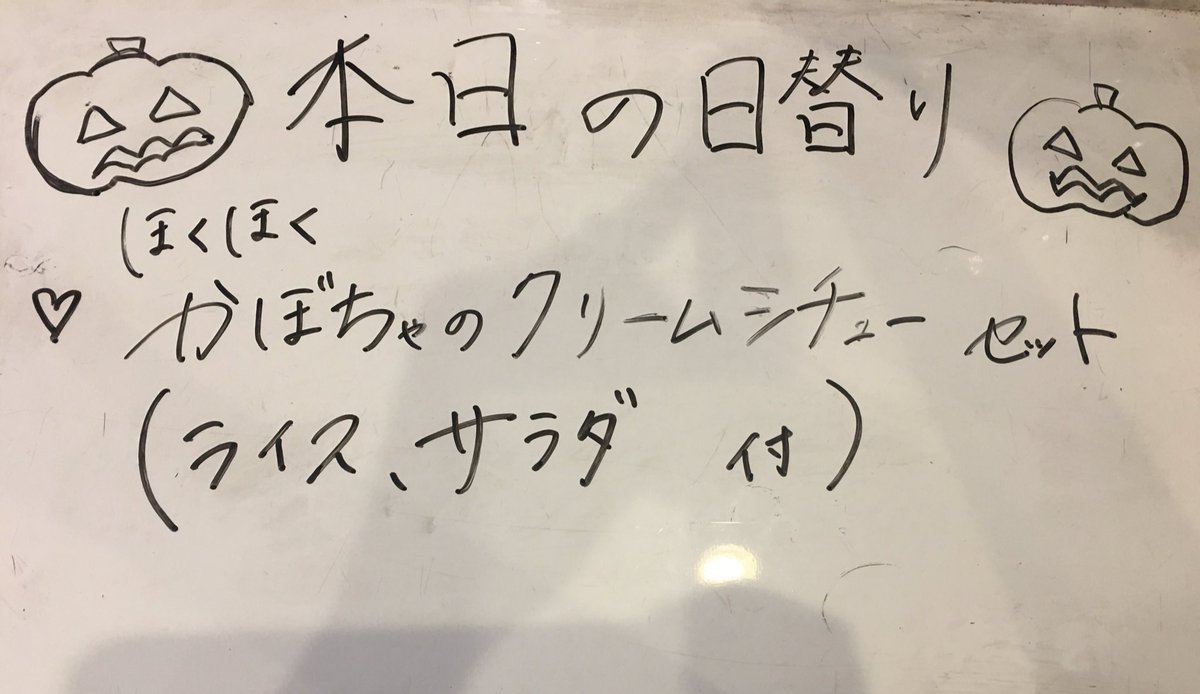 本日の日替り
ほくほく
♡ かぼちゃのクリームシチューセット
(ライス、サラダ 付)